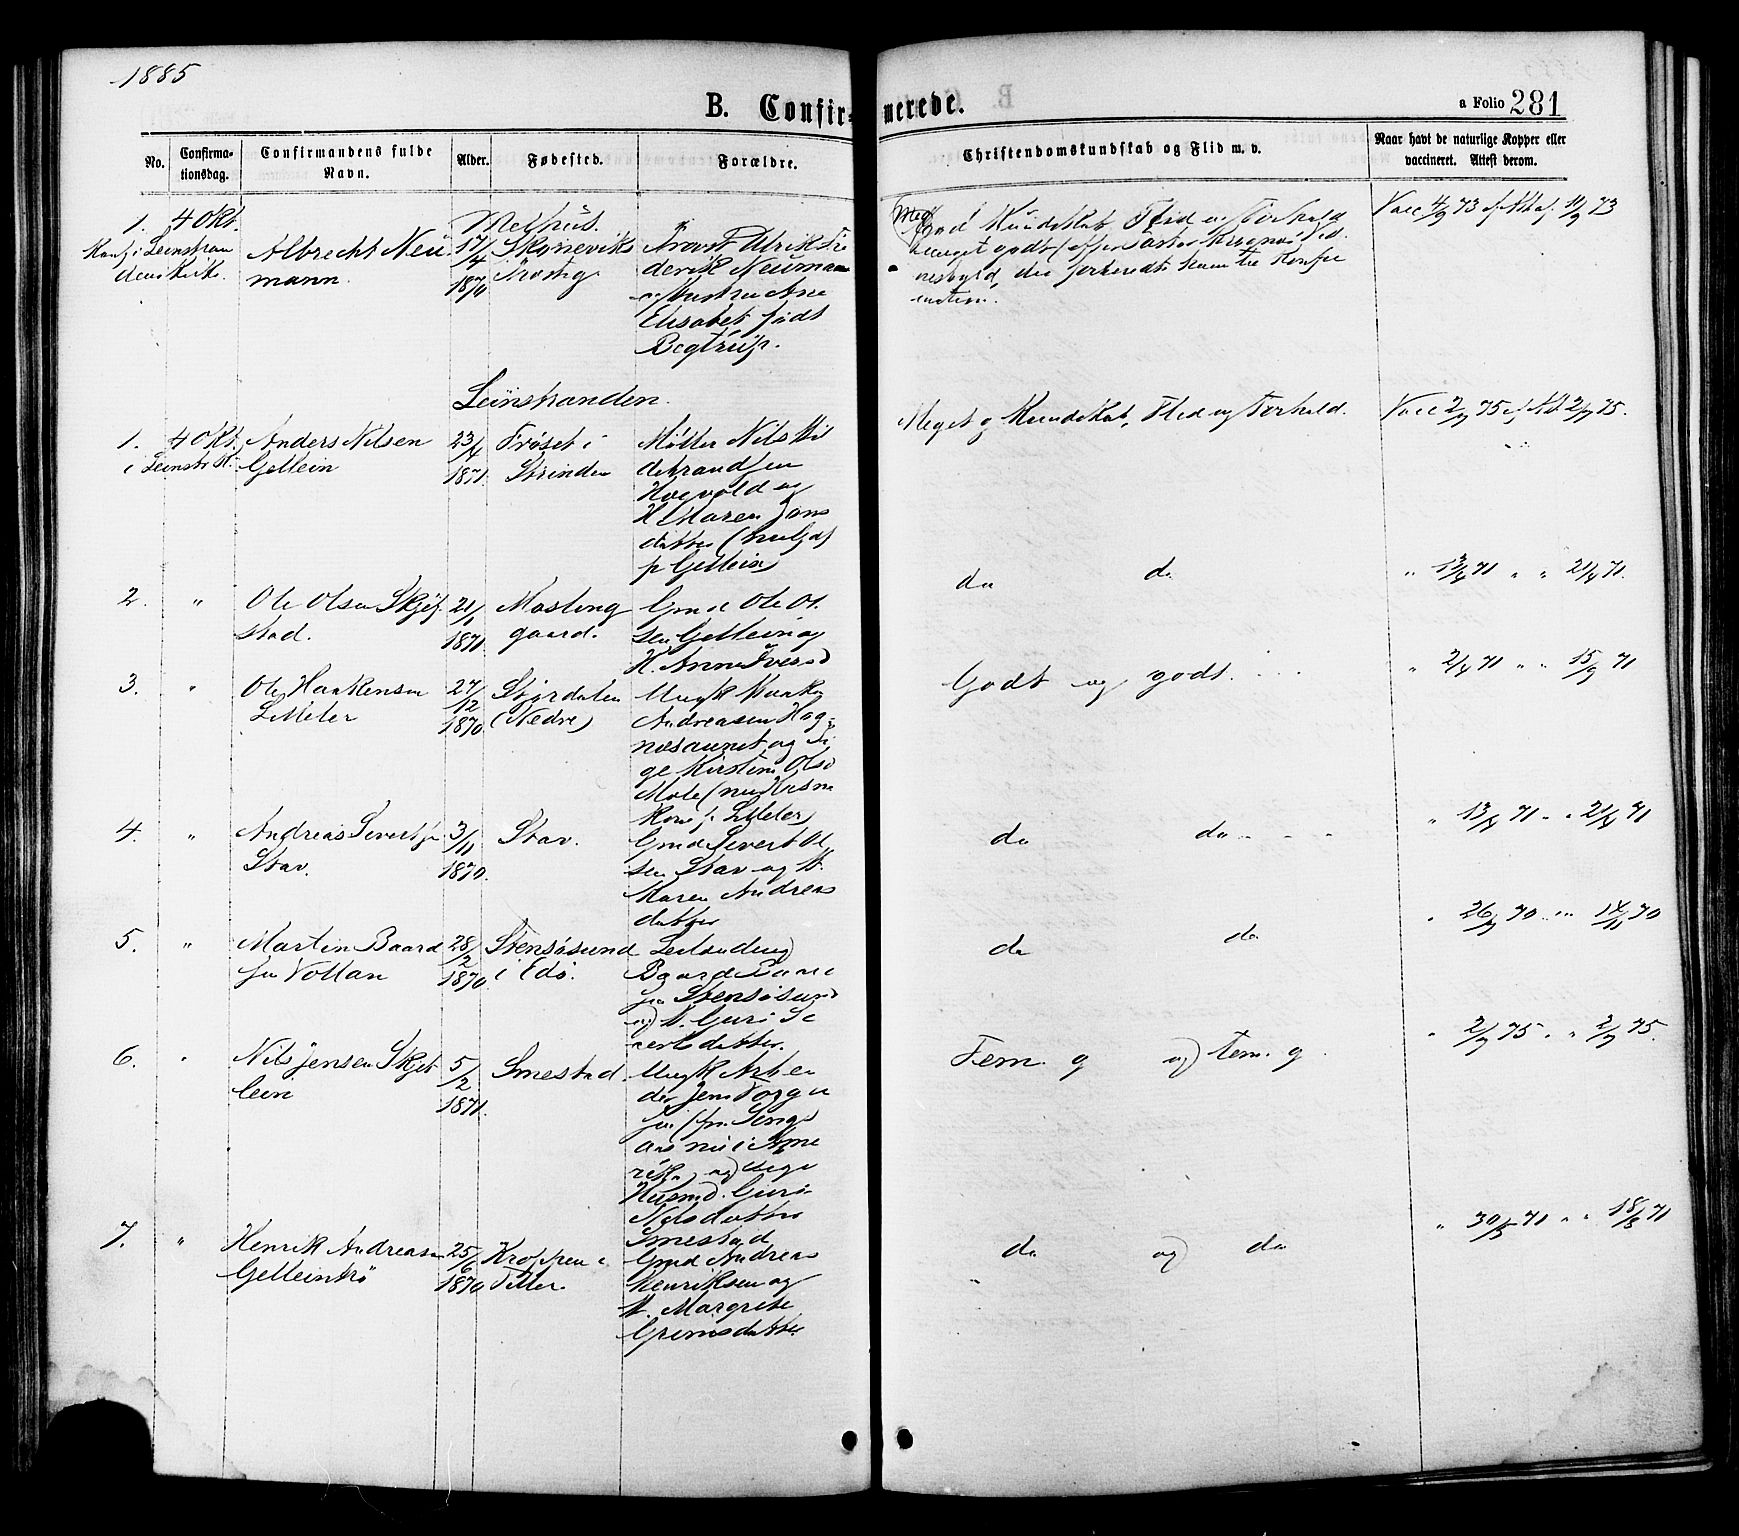 1885
B. Confirmerede.
a Folio 281
No.
Confirma-
tionsdag.
Confirmandens fulde
Navn.
Alder.
Fødested.
Forældre.
Christendomskundskab og Flid m. v.
Naar havt de naturlige Kopper eller
vaccineret. Attest derom.
Melhus.
1. 4 Okt.
Konf i Leinstran
dens Kirke.
Albrecht Neu
mann.
17/4
1870
Skoneviks
Provst Ulrik Fre
derik Neumann
og Hustru Ane
Elisabet født
Begtrup.
God Kundskab, Flid og Forhold
meget godt
Vacc 4/9 73 11/9 73
Leinstranden.
1. 4 Okt.
i Leinstr K.
Anders Nilsen
Gellein
23/4
1871.
Frøset i
Strinden
Møller Nils Hil
debrandsen
Hogvold og
H. Maren Jons
datter
p Gellein)
Meget g Kundskab, Flid og Forhold.
Vacc 2/7 75 2/7 75.
2. "
Ole Olsen Skjef
stad.
21/1
1871.
Mosling
gaard.
Gmd Ole Ol
sen Gellein og
H. Anne Iversd
do do
" 13/4 71 " " 21/4 71.
3. "
Ole Haakensen
Lilleler
27/12
1870.
Stjørdalen
(Nedre)
Ungk Haaken
Andreasen Hog
nesaunet og Pi
ge Kirstine Olsd
Mole (nu Husm
kone p. Lilleler)
Godt og godt.
" 2/4 71 " " 15/9 71
4. "
Andreas Sivertsen
Stav.
3/11
1870.
Stav.
Gmd Sivert Ol
sen Stav og H.
Maren Andreas
datter
do do
" 13/4 71 " " 21/4 71
5. "
Martin Baard
sen Vollan
28/2
1870.
Stensøsund
i Edø.
Baard Baard
sen Stensøsund
og H. Guri Si
vertsdatter.
do do
" 26/9 70 " " 14/11 70
6. "
Nils Jensen Skjet
lein
5/2
1871.
Smestad.
Ungk Arbei
der Jens Torge
sen
nu i Ame
rika) og Pige
Husmd. Guri
Nilsdatter
Smestad
Tem. g og tem. g.
" 2/7 75. " 2/7 75.
7. "
Henrik Andreasen
Gelleintrø
25/6
1870
Kroppen i
Tiller.
Gmd Andreas
Henriksen og
H. Margrete
Grimsdatter
do og do
" 30/5 71 " " 18/8 71